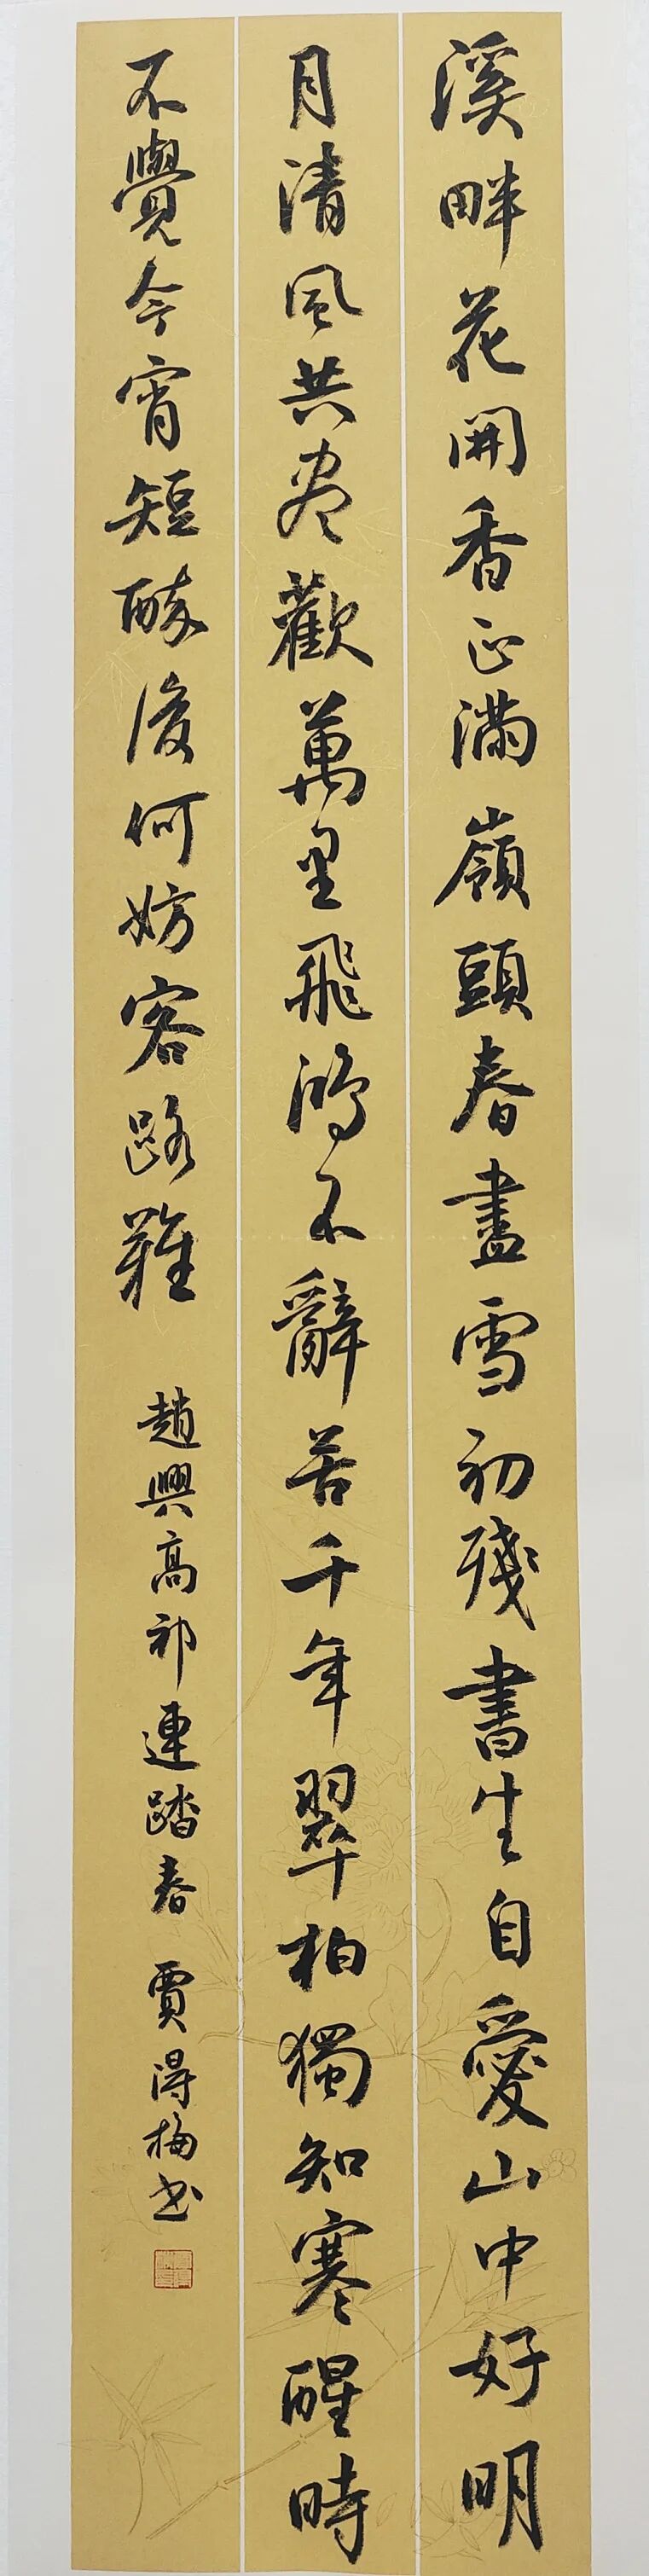 溪畔花開香正滿嶺頭春盡雪初殘書生自愛山中好明
月清風共尽歡萬里飛鴻不辭苦千年翠柏獨知寒醒時
不覺今宵短醉後何妨客路難
趙興高祁連踏春
賈得梅书